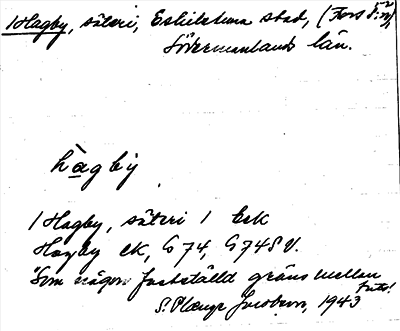 1 Hagby, säteri, Eskilstuna stad, (Fors s:n),
Södermanlands län.
hàgby
1 Hagby, säteri 1 Eck
Hagby ek, G 74, G 74 SV.
"Som någon fastställd gräns mellan
S. Plænge Jacobson, 1943